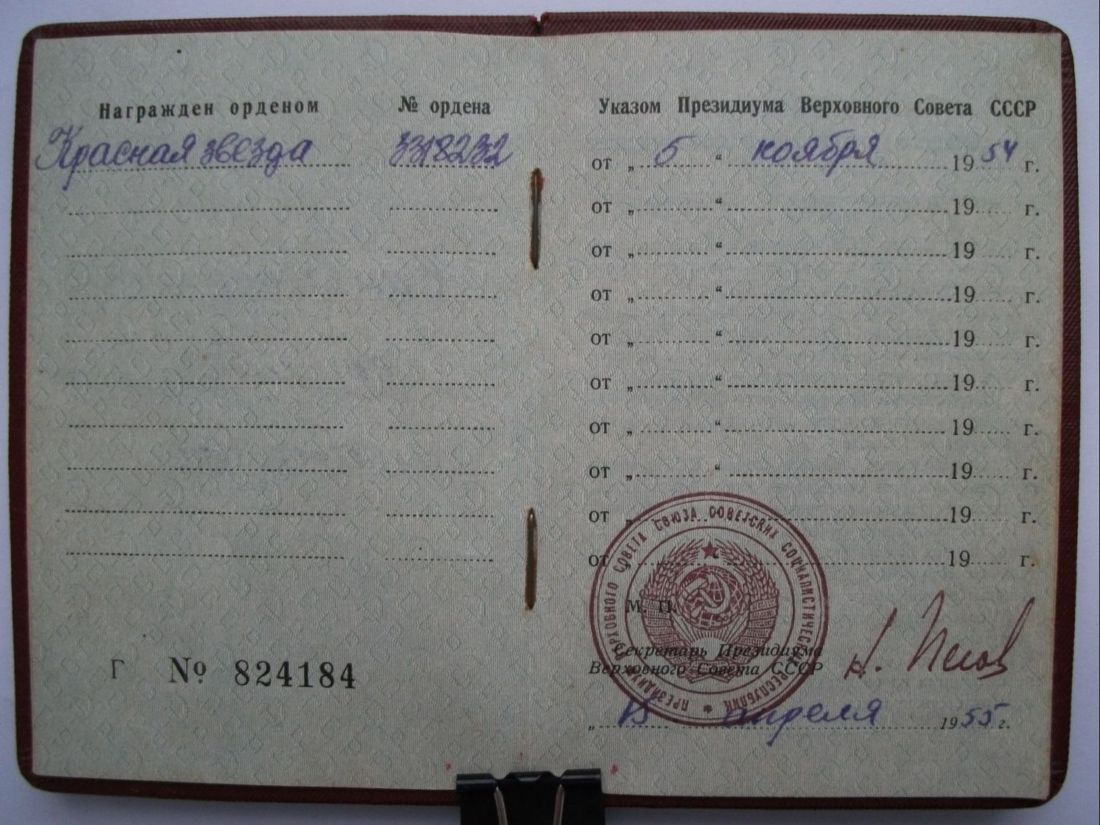 Награжден орденом
№ ордена
Красная звезда
3318232
Г № 824184
Указом Президиума Верховного Совета СССР
от „ 5 “ ноября 1954 г.
от „ “ 19 г.
от „ “ 19 г.
от „ “ 19 г.
от „ “ 19 г.
от „ “ 19 г.
от „ “ 19 г.
от „ “ 19 г.
от „ “ 19 г.
от „ “ 19 г.
ПРЕЗИДИУМ ВЕРХОВНОГО СОВЕТА СОЮЗА СОВЕТСКИХ СОЦИАЛИСТИЧЕСКИХ РЕСПУБЛИК
М. П.
Секретарь Президиума
Верховного Совета СССР
Н. Пегов
„ апреля 1955 г.